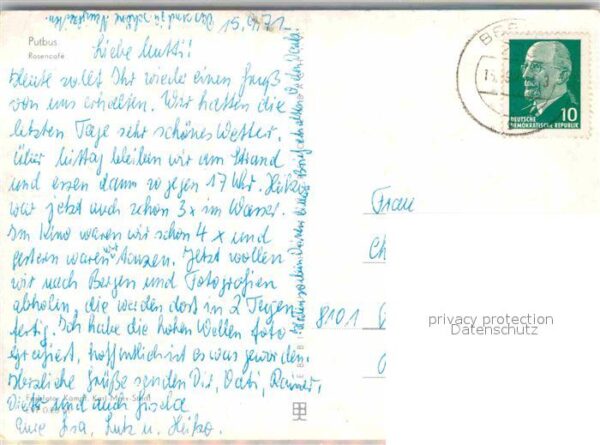 15.9.71
Putbus
Rosencafe
Liebe Mutti!
Heute sollt Ihr wieder einen Gruß
von uns erhalten. Wir hatten die
letzten Tage sehr schönes Wetter.
Über Mittag bleiben wir am Strand
und essen dann so gegen 17 Uhr. Heiko
war jetzt auch schon 3x im Wasser.
Im Kino waren wir schon 4 x und
gestern waren wir tanzen. Jetzt wollen
wir nach Bergen und Fotografien
abholen, die werden dort in 2 Tagen
fertig. Ich habe die hohen Wellen foto
grafiert, hoffentlich ist es was geworden.
Herzliche Grüße senden Dir, Vati, Rainer,
und auch Gisela
Eure Lutz u. Heiko.
Frau
8101
10
DEUTSCHE
DEMOKRATISCHE REPUBLIK
privacy protection
Datenschutz